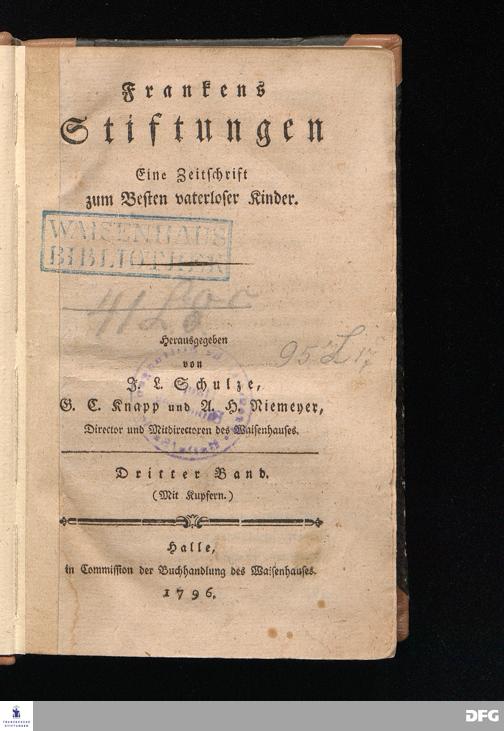 Frankens
Stiftungen
Eine Zeitschrift
zum Besten vaterloser Kinder.
WAISENHAUS
BIBLIOTHEK
Herausgegeben
von
J. L. Schulze,
G. C. Knapp und A. H. Niemeyer,
Director und Mitdirectoren des Waisenhauses.
Dritter Band.
(Mit Kupfern.)
Halle,
in Commission der Buchhandlung des Waisenhauses.
1796.
FRANCKESCHE
STIFTUNGEN
DFG